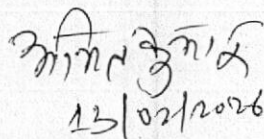 अनिल कुमार
13/02/2026